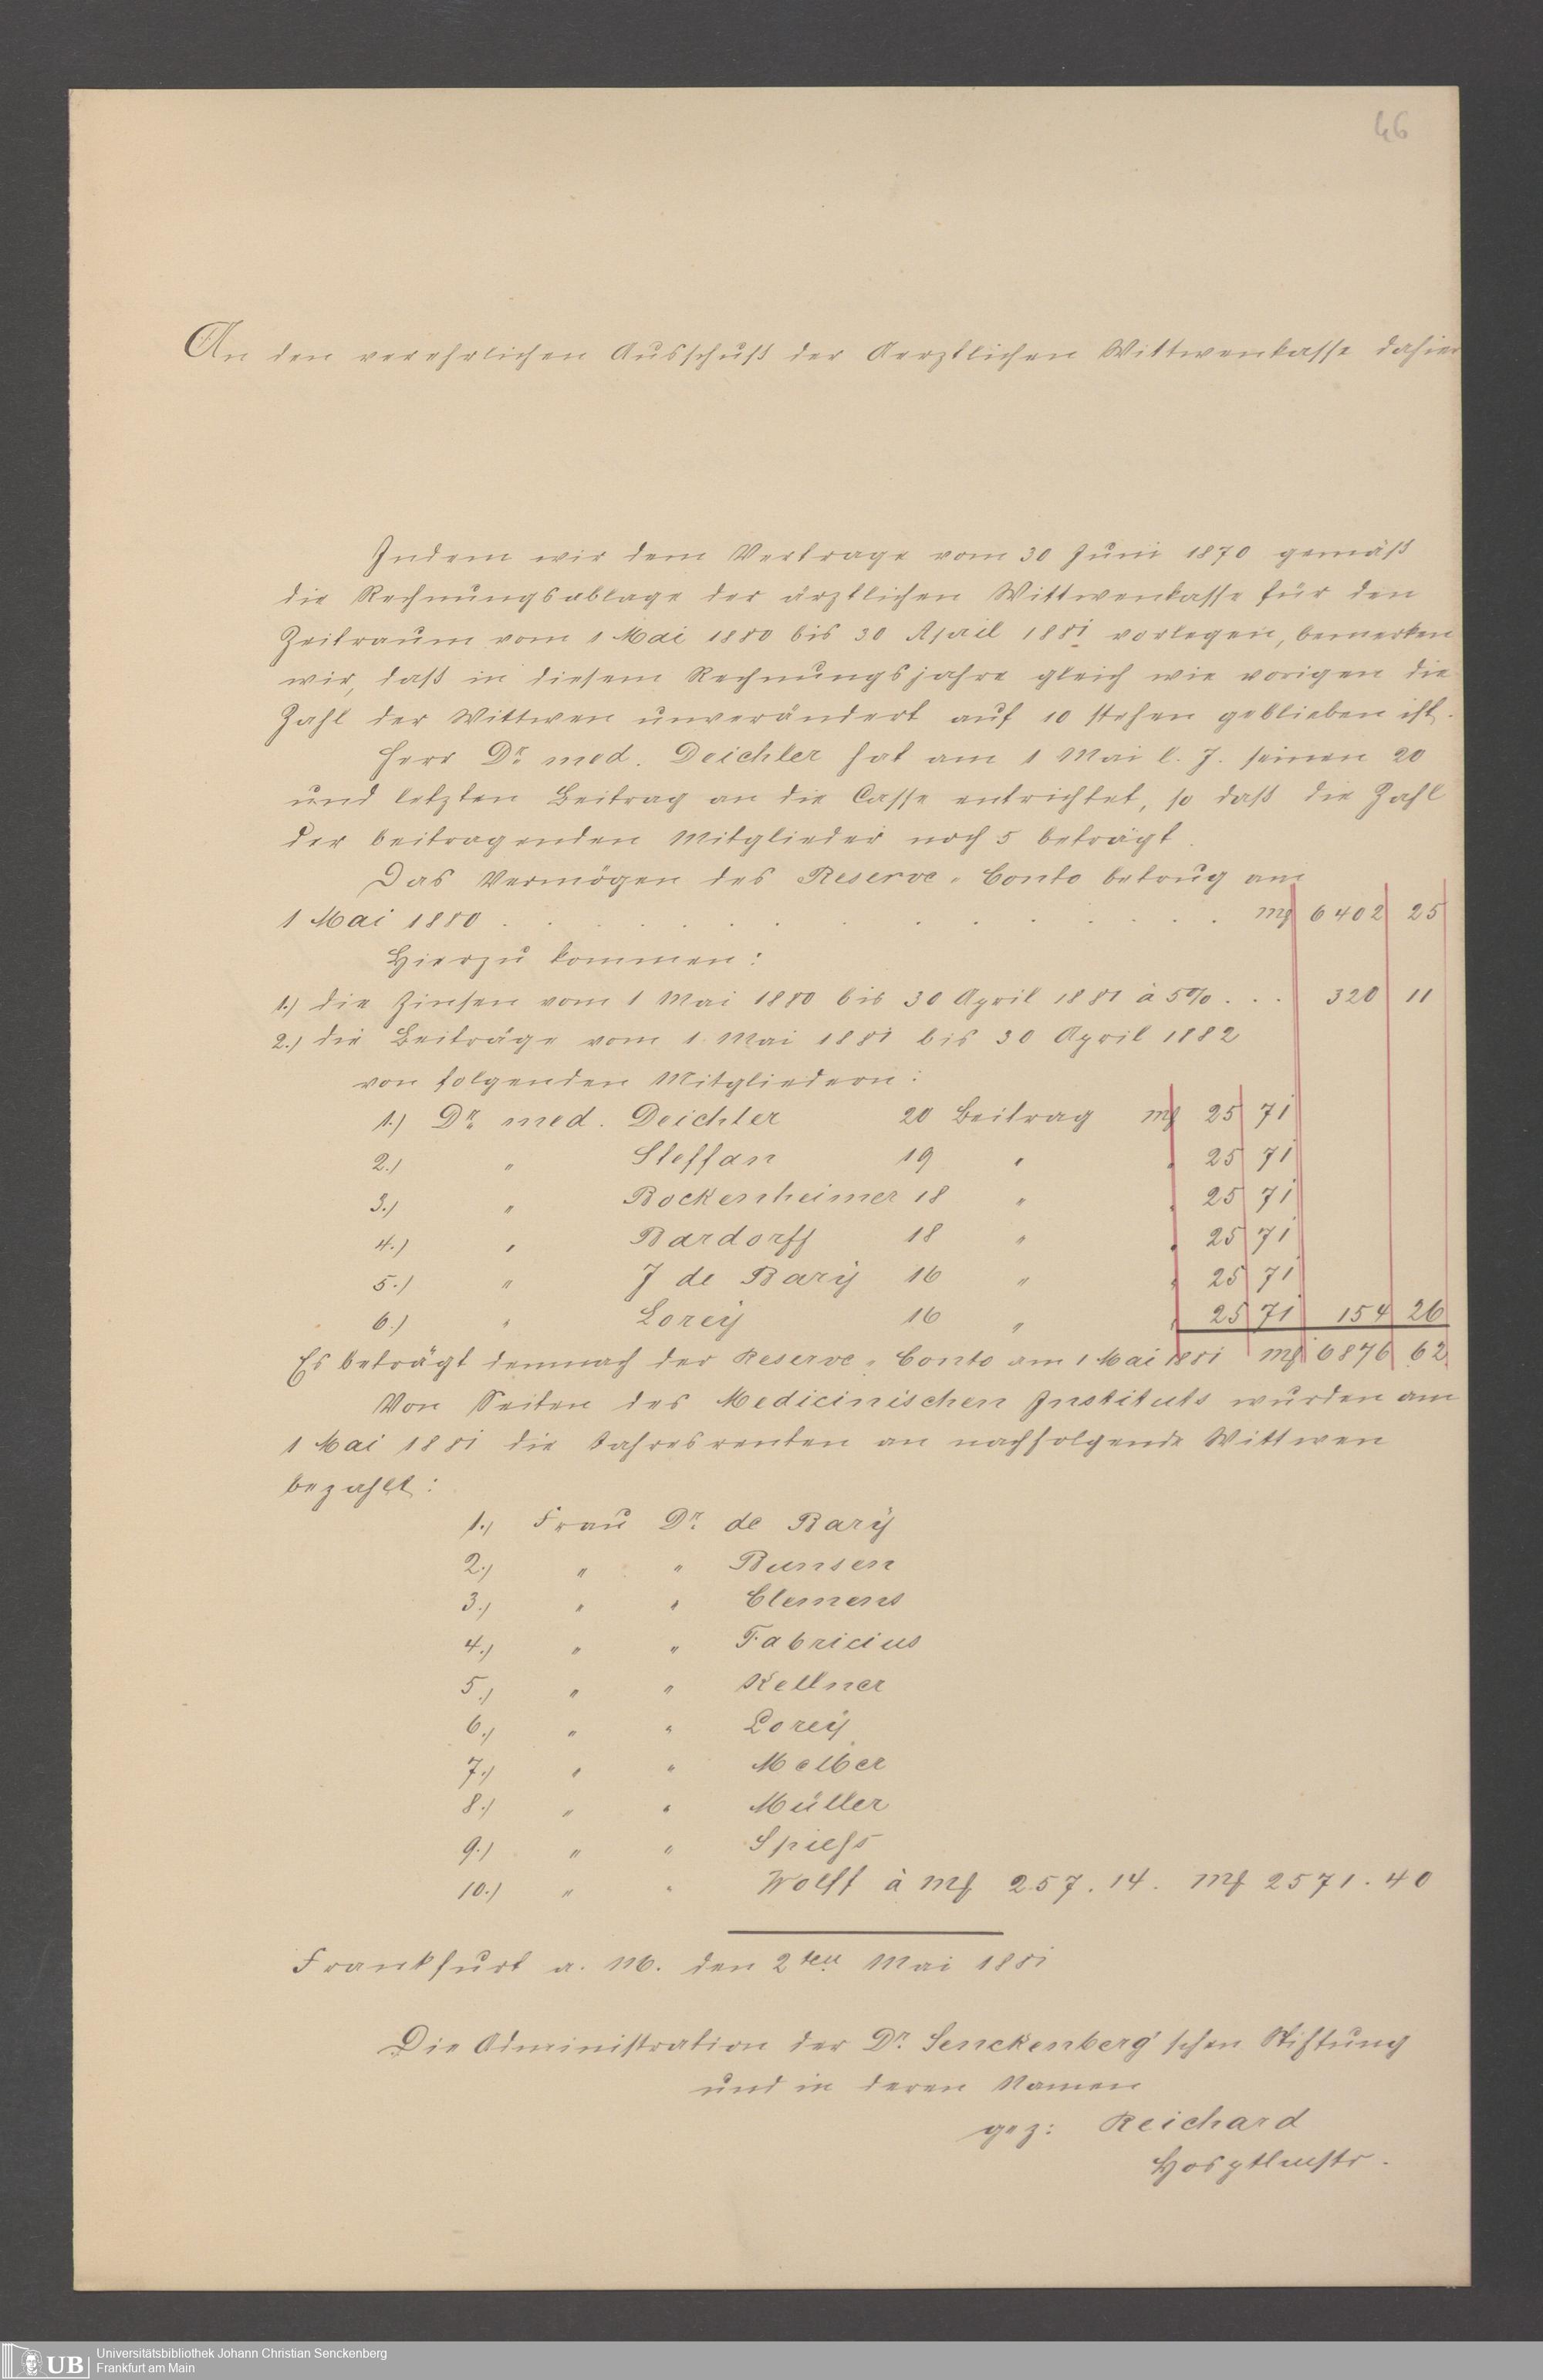 46
An den verehrlichen Ausschuß der Aerztlichen Wittwenkasse dahier
Indem wir dem Vertrage vom 30 Juni 1870 gemäß
die Rechnungsablage der ärztlichen Wittwenkasse für den
Zeitraum vom 1 Mai 1880 bis 30 April 1881 vorlegen, bemerken
wir, daß in diesem Rechnungsjahre gleich wie vorigen die
Zahl der Wittwen unverändert auf 10 stehen geblieben ist.
Herr Dr. med. Deichler hat am 1 Mai l. J. seinen 20
und letzten Beitrag an die Casse entrichtet, so daß die Zahl
der beitragenden Mitglieder noch 5 beträgt.
Das Vermögen des Reserve-Conto betrug am
1 Mai 1880 . . . . . . . . . . . . . . Mk 6402 25
Hierzu kommen:
1.) die Zinsen vom 1 Mai 1880 bis 30 April 1881 à 5% . . . 320 11
2.) die Beiträge vom 1 Mai 1881 bis 30 April 1882
von folgenden Mitgliedern:
1.) Dr. med. Deichler 20 Beitrag Mk 25 71
2.) " Steffan 19 " " 25 71
3.) " Bockenheimer 18 " " 25 71
4.) " Bardorff 18 " " 25 71
5.) " J de Bary 16 " " 25 71
6.) " Lorey 16 " " 25 71 154 26
Es beträgt demnach der Reserve-Conto am 1 Mai 1881 Mk 6876 62
Von Seiten des Medicinischen Instituts wurden am
1 Mai 1881 die Jahresrenten an nachfolgende Wittwen
bezahlt:
1.) Frau Dr. de Bary
2.) " " Bunsen
3.) " " Clemens
4.) " " Fabricius
5.) " " Kellner
6.) " " Lorey
7.) " " Melber
8.) " " Müller
9.) " " Spiess
10.) " " Wolff à Mk 257.14. Mk 2571.40
Frankfurt a. M. den 2ten Mai 1881
Die Administration der Dr. Senckenberg'schen Stiftung
und in deren Namen
gez: Reichard
Hosptlmstr.
UB
Universitätsbibliothek Johann Christian Senckenberg
Frankfurt am Main